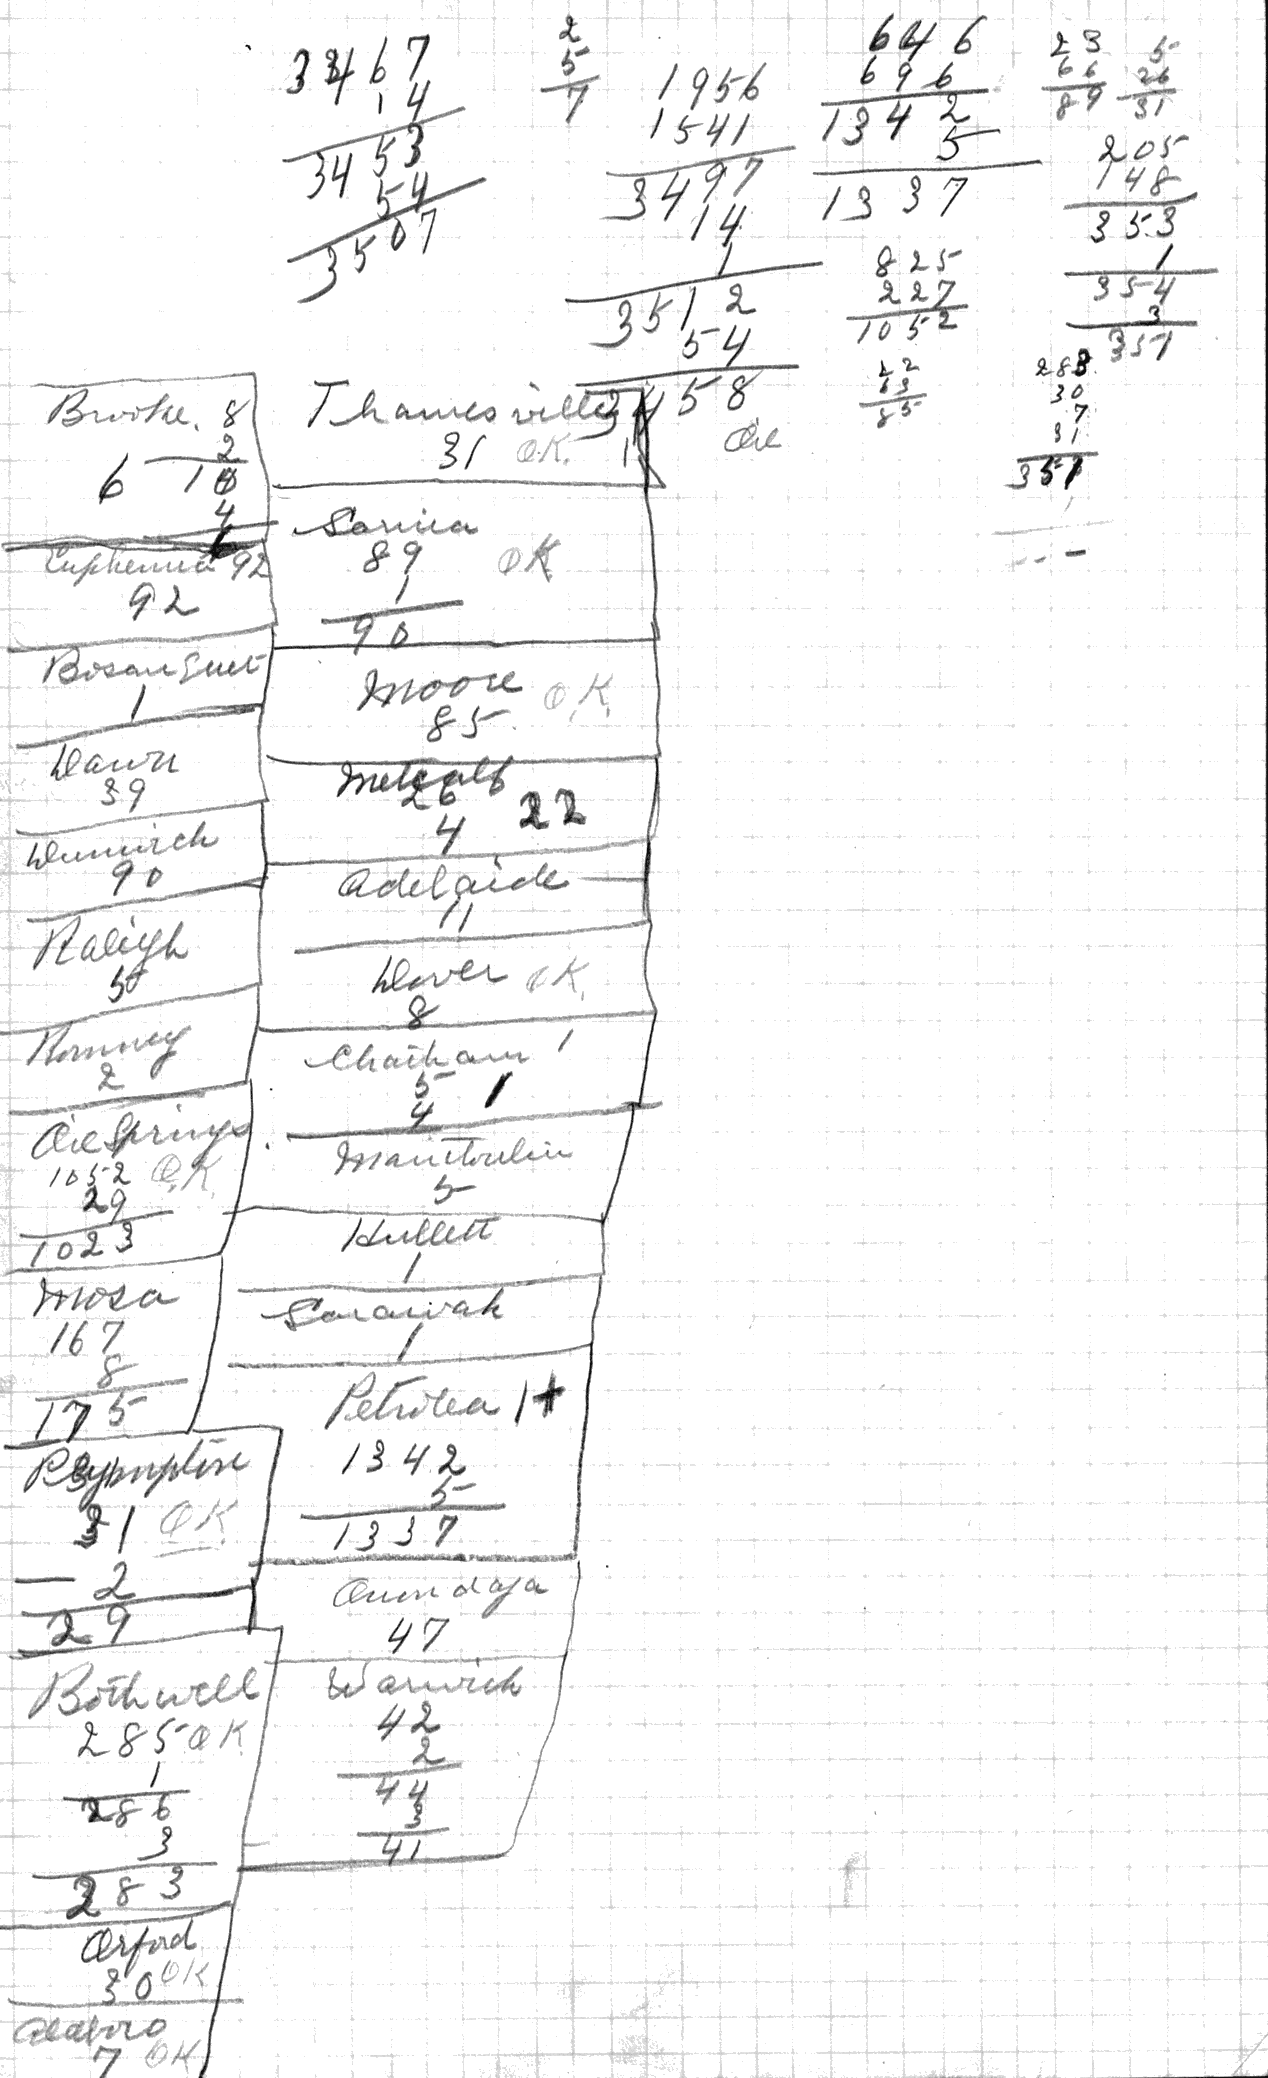 3467
14
3453
54
3507
2
5
7
1956
1541
3497
14
1
3512
54
3458
Oil
646
696
1342
5
1337
825
227
1052
22
63
85
23
66
89
5
26
31
205
148
353
1
354
3
351
283
30
7
31
351
Brooke 8
2
6 10
4
Euphemia 92
92
Bosanquet
1
Dawn
39
Dunwich
90
Raleigh
5
Romney
2
Oil Springs
1052 O.K.
29
1023
Mosa
167
8
175
Plympton
31 OK
2
29
Bothwell
285 OK
1
286
3
283
Orford
30 OK
Aldboro
7 OK
Thamesville
31 O.K.
Sarnia
89 OK
1
90
Moore O.K.
85
Metcalf
26
4 22
Adelaide
11
Dover OK.
8
Chatham 1
5
4 1
Manitoulin
5
Hullett
1
Sarawak
1
Petrolea 1+
1342
5
1337
Onondaga
47
Warwick
42
2
44
3
41